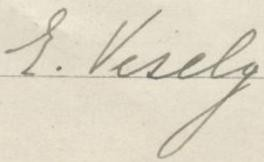 E. Vesely